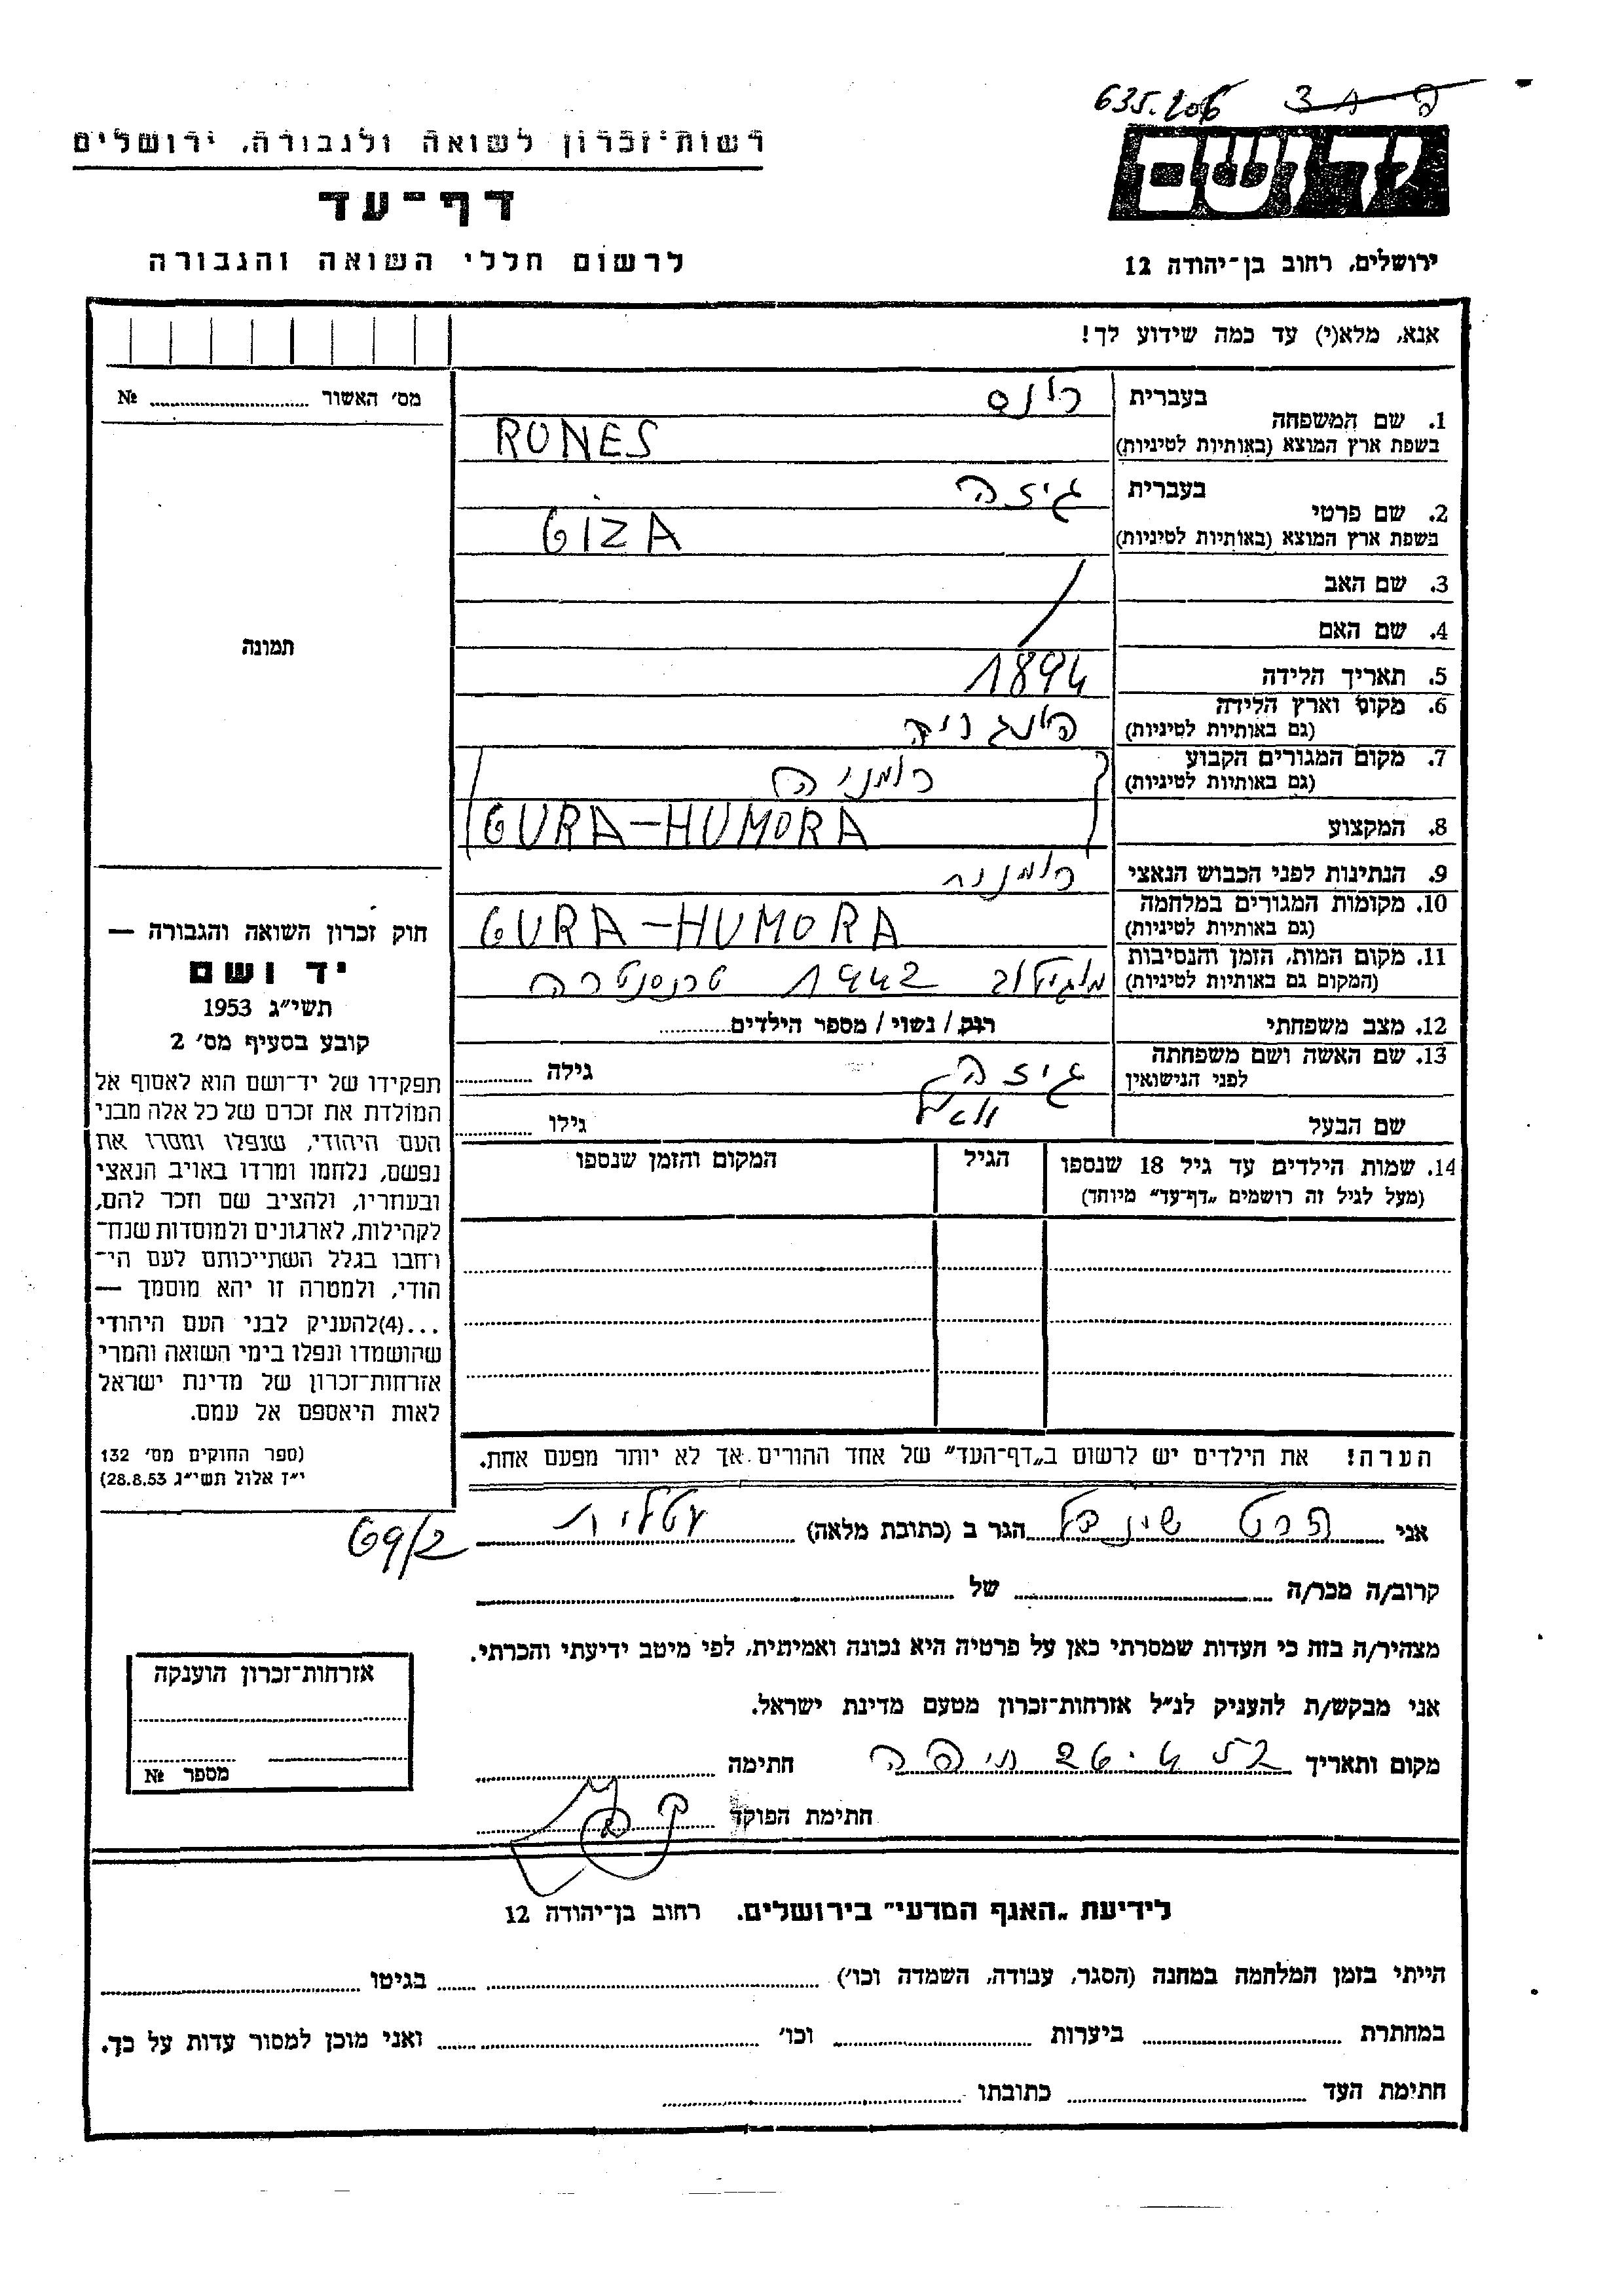 635.206
רשות־זכרון לשואה ולגבורה, ירושלים
דף־עד
לרשום חללי השואה והגבורה
יד ושם
ירושלים, רחוב בן־יהודה 12
אנא, מלא(י) עד כמה שידוע לך!
מס׳ האשור № 
1. שם המשפחה
בעברית רונס
בשפת ארץ המוצא (באותיות לטיניות) RONES
2. שם פרטי
בעברית גיזה
בשפת ארץ המוצא (באותיות לטיניות) GIZA
3. שם האב
4. שם האם
5. תאריך הלידה 1894
6. מקום וארץ הלידה
(גם באותיות לטיניות)
7. מקום המגורים הקבוע רומניה
(גם באותיות לטיניות)
GURA-HUMORA
8. המקצוע
9. הנתינות לפני הכבוש הנאצי רומנית
10. מקומות המגורים במלחמה
(גם באותיות לטיניות) GURA-HUMORA
11. מקום המות, הזמן והנסיבות מוגילוב 1942
(המקום גם באותיות לטיניות)
12. מצב משפחתי רוק / נשוי / מספר הילדים
13. שם האשה ושם משפחתה גיזה גילה
לפני הנישואין
שם הבעל גילו
14. שמות הילדים עד גיל 18 שנספו הגיל המקום והזמן שנספו
(מעל לגיל זה רושמים „דף־עד״ מיוחד)
תמונה
חוק זכרון השואה והגבורה —
יד ושם
תשי״ג 1953
קובע בסעיף מס׳ 2
תפקידו של יד־ושם הוא לאסוף אל
המולדת את זכרם של כל אלה מבני
העם היהודי, שנפלו ומסרו את
נפשם, נלחמו ומרדו באויב הנאצי
ובעוזריו, ולהציב שם וזכר להם,
לקהילות, לארגונים ולמוסדות שנח־
רחבו בגלל השתייכותם לעם הי־
הודי, ולמטרה זו יהא מוסמך —
...(4)להעניק לבני העם היהודי
שהושמדו ונפלו בימי השואה והמרי
אזרחות־זכרון של מדינת ישראל
לאות היאספם אל עמם.
(ספר החוקים מס׳ 132
י״ז אלול תשי״ג 28.8.53)
הערה! את הילדים יש לרשום ב„דף־העד״ של אחד ההורים אך לא יותר מפעם אחת.
אני הגר ב (כתובת מלאה) עטלית
69/2
קרוב/ה מכר/ה של
מצהיר/ה בזה כי העדות שמסרתי כאן על פרטיה היא נכונה ואמיתית, לפי מיטב ידיעתי והכרתי.
אני מבקש/ת להעניק לנ״ל אזרחות־זכרון מטעם מדינת ישראל.
מקום ותאריך חיפה חתימה
חתימת הפוקד
אזרחות־זכרון הוענקה
מספר №
לידיעת „האגף המדעי״ בירושלים. רחוב בן־יהודה 12
הייתי בזמן המלחמה במחנה (הסגר, עבודה, השמדה וכו׳) בגיטו
במחתרת ביערות וכו׳ ואני מוכן למסור עדות על כך.
חתימת העד כתובתו